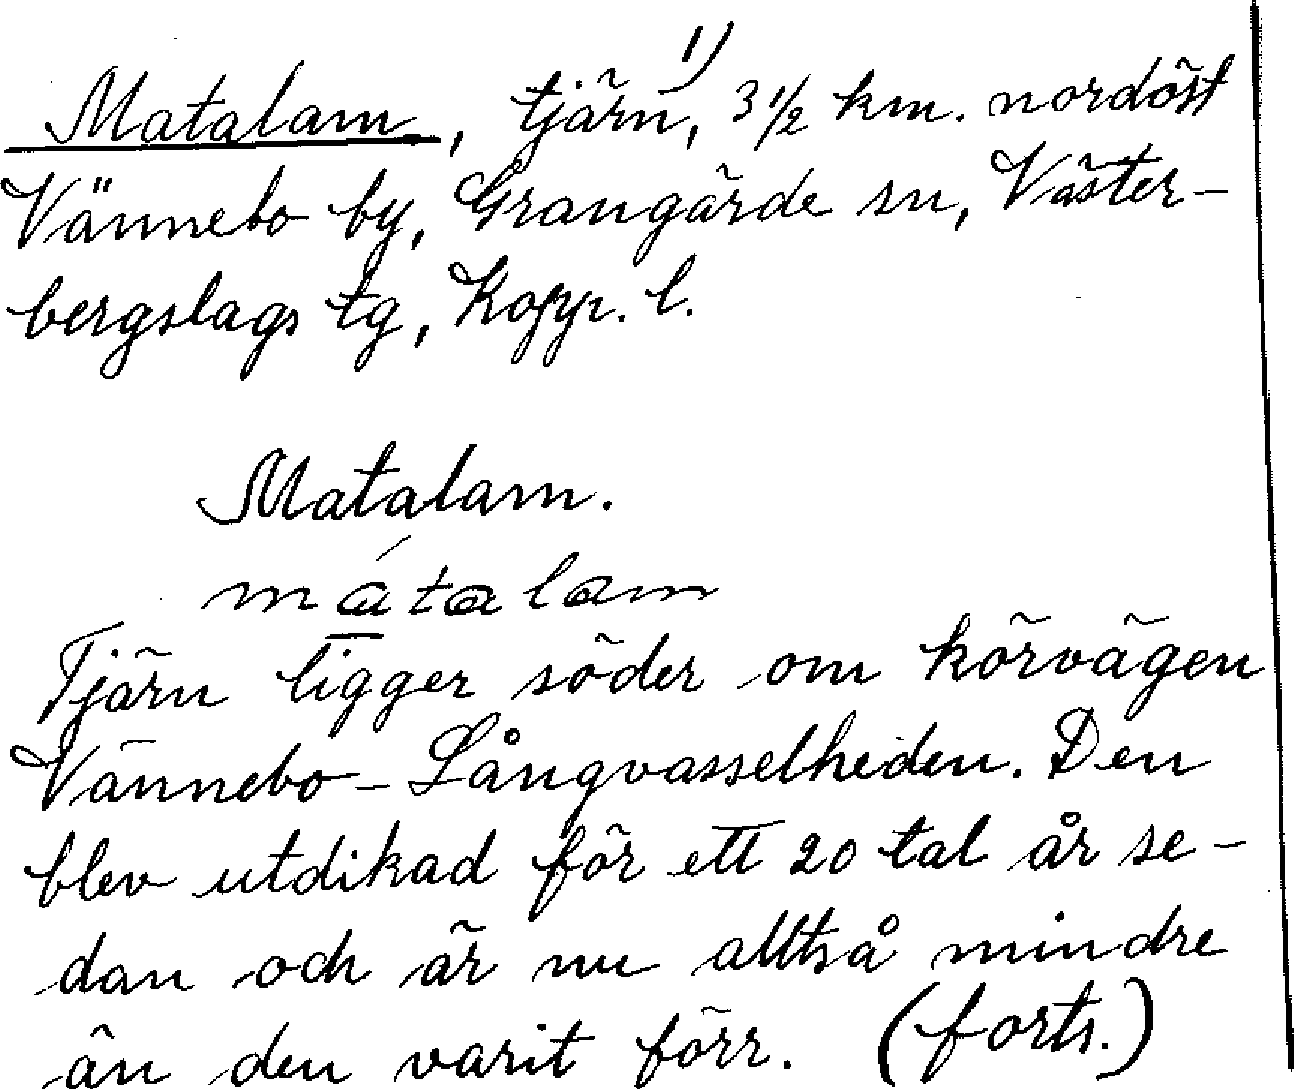 Matalam, tjärn¹⁾, 3 ½ km. nordöst
Vännebo by, Grangärde sn, Väster-
bergslags tg, Kopp. l.
Matalam.
mátalam
Tjärn ligger söder om körvägen
Vännebo - Långvasselheden. Den
blev utdikad för ett 20 tal år se-
dan och är nu alltså mindre
än den varit förr. (forts.)